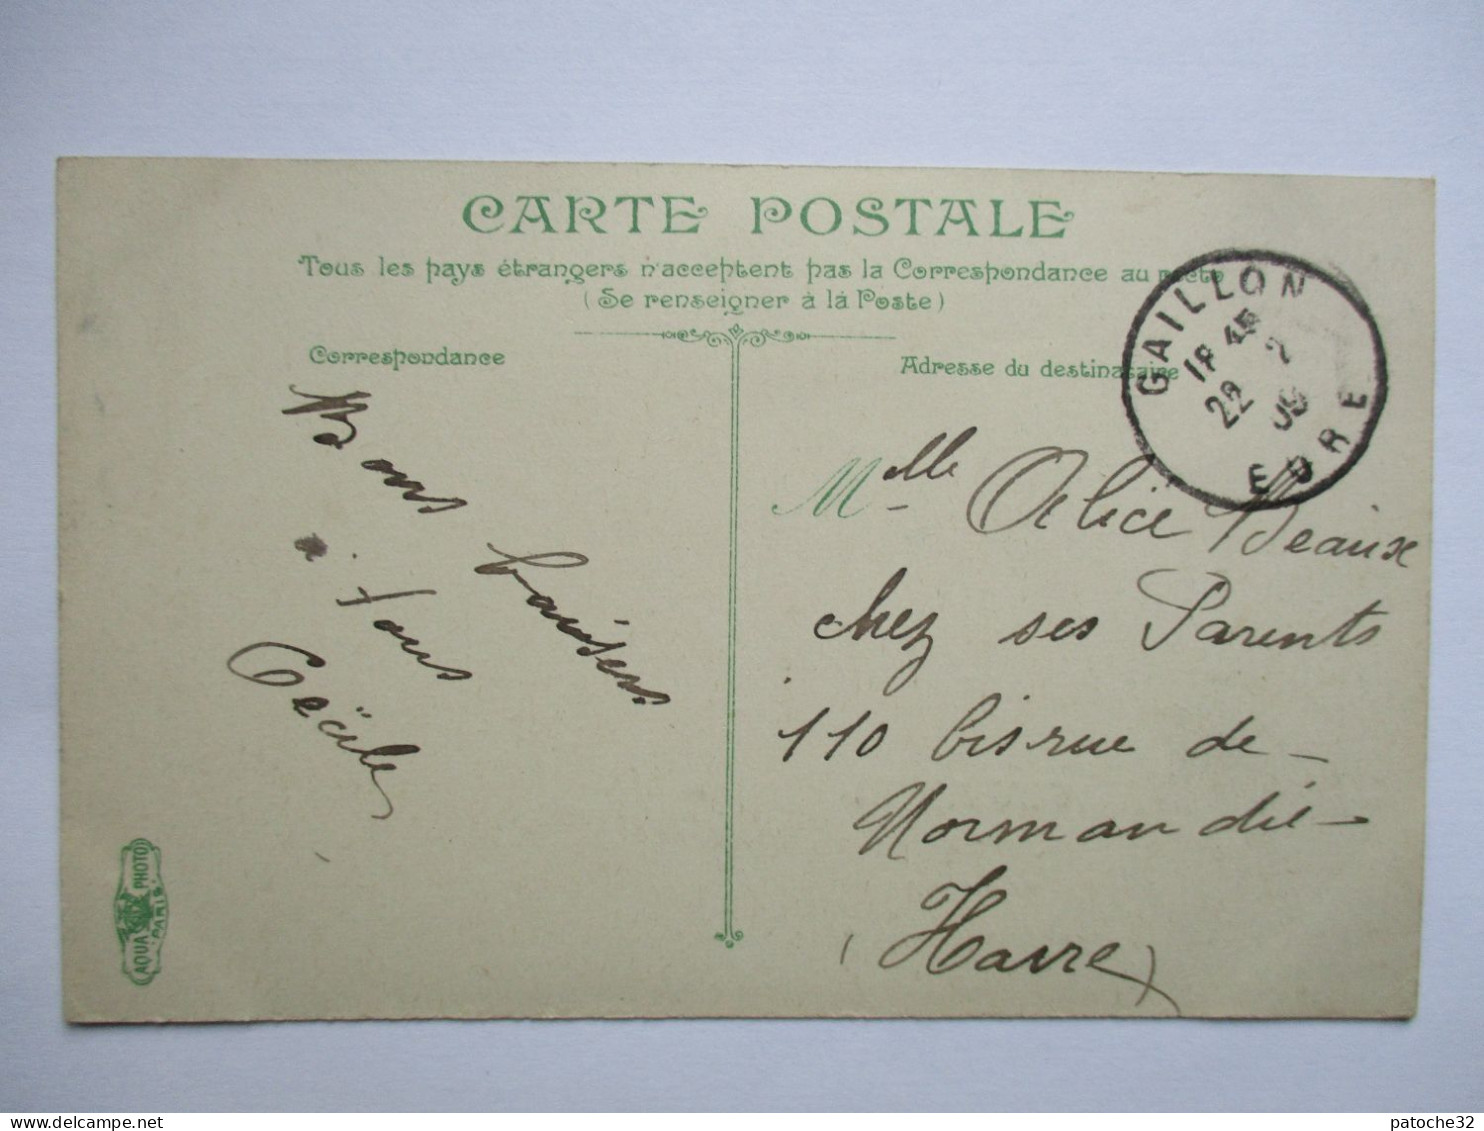 CARTE POSTALE
Tous les pays étrangers n'acceptent pas la Correspondance au recto
(Se renseigner à là Poste)
Correspondance
Bons baisers
à tous
Cécile
AQUA PHOTO
PARIS
Adresse du destinataire
GAILLON
22 2 09
EURE
Mlle Alice Beaux
chez ses Parents
110 bis rue de
Normandie
(Havre)
patoche32